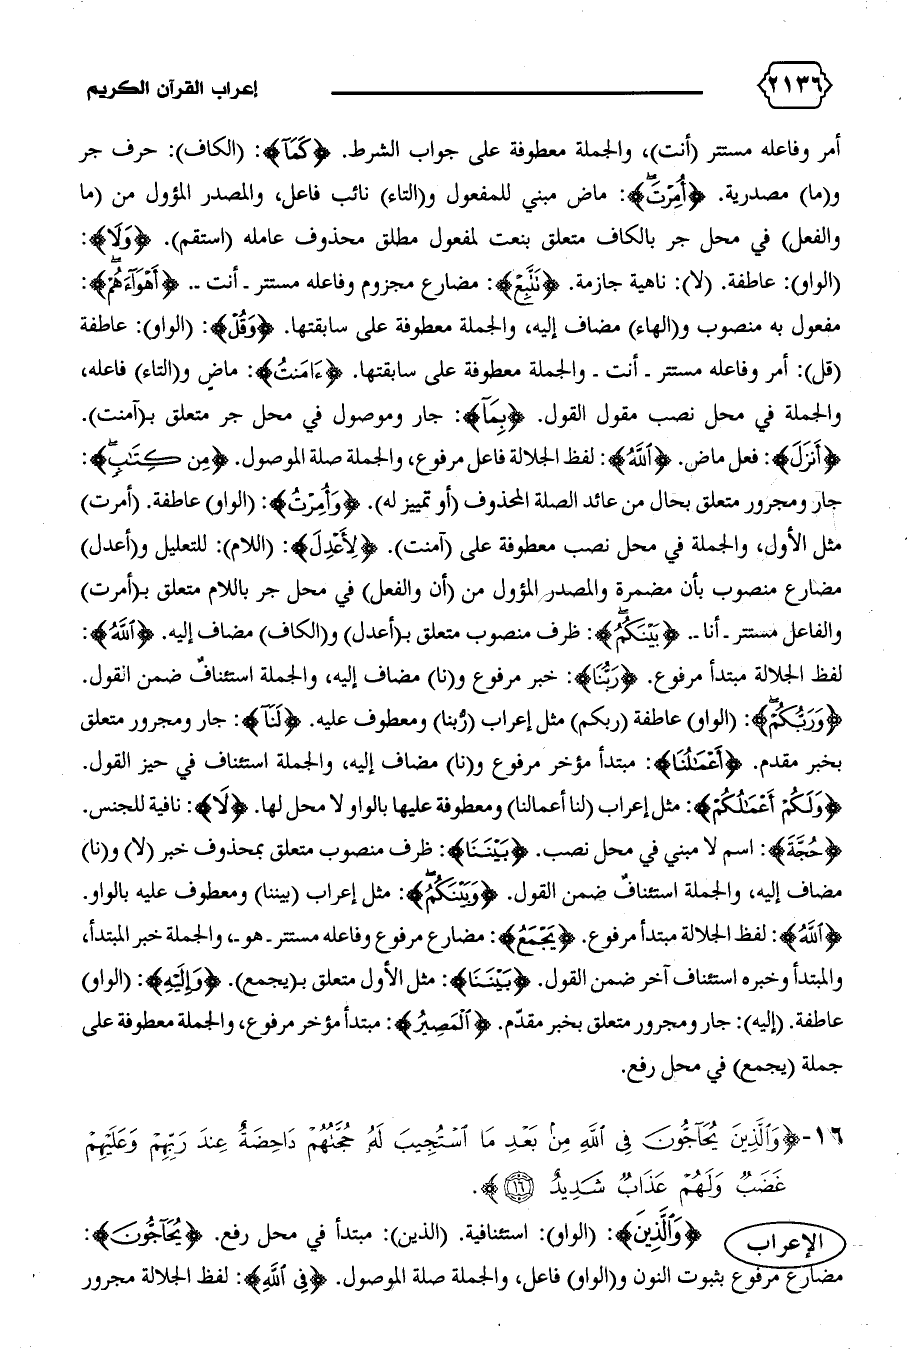 ٢١٣٦ إعراب القرآن الكريم
أمر وفاعله مستتر (أنت)، والجملة معطوفة على جواب الشرط. ﴿كَمَآ﴾: (الكاف): حرف جر
و(ما) مصدرية. ﴿أُمِرْتَۖ﴾: ماض مبني للمفعول و(التاء) نائب فاعل، والمصدر المؤول من (ما
والفعل) في محل جر بالكاف متعلق بنعت لمفعول مطلق محذوف عامله (استقم). ﴿وَلَا﴾:
(الواو): عاطفة. (لا): ناهية جازمة. ﴿نَتَّبِعْ﴾: مضارع مجزوم وفاعله مستتر ـ أنت ـ. ﴿أَهْوَآءَهُمْۖ﴾:
مفعول به منصوب و(الهاء) مضاف إليه، والجملة معطوفة على سابقتها. ﴿وَقُلْ﴾: (الواو): عاطفة
(قل): أمر وفاعله مستتر ـ أنت ـ والجملة معطوفة على سابقتها. ﴿ءَامَنتُ﴾: ماضٍ و(التاء) فاعله،
والجملة في محل نصب مقول القول. ﴿بِمَآ﴾: جار وموصول في محل جر متعلق بـ(آمنت).
﴿أَنزَلَ﴾: فعل ماض. ﴿ٱللَّهُ﴾: لفظ الجلالة فاعل مرفوع، والجملة صلة الموصول. ﴿مِن كِتَٰبٍۖ﴾:
جار ومجرور متعلق بحال من عائد الصلة المحذوف (أو تمييز له). ﴿وَأُمِرْتُ﴾: (الواو) عاطفة. (أمرت)
مثل الأول، والجملة في محل نصب معطوفة على (آمنت). ﴿لِأَعْدِلَ﴾: (اللام): للتعليل و(أعدل)
مضارع منصوب بأن مضمرة والمصدر المؤول من (أن والفعل) في محل جر باللام متعلق بـ(أمرت)
والفاعل مستتر ـ أنا ـ. ﴿بَيْنَكُمُۖ﴾: ظرف منصوب متعلق بـ(أعدل) و(الكاف) مضاف إليه. ﴿ٱللَّهُ﴾:
لفظ الجلالة مبتدأ مرفوع. ﴿رَبُّنَا﴾: خبر مرفوع و(نا) مضاف إليه، والجملة استئنافٌ ضمن القول.
﴿وَرَبُّكُمْۖ﴾: (الواو) عاطفة (ربكم) مثل إعراب (رُبنا) ومعطوف عليه. ﴿لَنَآ﴾: جار ومجرور متعلق
بخبر مقدم. ﴿أَعْمَٰلُنَا﴾: مبتدأ مؤخر مرفوع و(نا) مضاف إليه، والجملة استئناف في حيز القول.
﴿وَلَكُمْ أَعْمَٰلُكُمْ﴾: مثل إعراب (لنا أعمالنا) ومعطوفة عليها بالواو لا محل لها. ﴿لَا﴾: نافية للجنس.
﴿حُجَّةَ﴾: اسم لا مبني في محل نصب. ﴿بَيْنَنَا﴾: ظرف منصوب متعلق بمحذوف خبر (لا) و(نا)
مضاف إليه، والجملة استئنافٌ ضمن القول. ﴿وَبَيْنَكُمُۖ﴾: مثل إعراب (بيننا) ومعطوف عليه بالواو.
﴿ٱللَّهُ﴾: لفظ الجلالة مبتدأ مرفوع. ﴿يَجْمَعُ﴾: مضارع مرفوع وفاعله مستتر ـ هو ـ، والجملة خبر المبتدأ،
والمبتدأ وخبره استئناف آخر ضمن القول. ﴿بَيْنَنَا﴾: مثل الأول متعلق بـ(يجمع). ﴿وَإِلَيْهِ﴾: (الواو)
عاطفة. (إليه): جار ومجرور متعلق بخبر مقدّم. ﴿ٱلْمَصِيرُ﴾: مبتدأ مؤخر مرفوع، والجملة معطوفة على
جملة (يجمع) في محل رفع.
١٦- ﴿وَٱلَّذِينَ يُحَآجُّونَ فِى ٱللَّهِ مِنۢ بَعْدِ مَا ٱسْتُجِيبَ لَهُۥ حُجَّتُهُمْ دَاحِضَةٌ عِندَ رَبِّهِمْ وَعَلَيْهِمْ
غَضَبٌ وَلَهُمْ عَذَابٌ شَدِيدٌ ١٦﴾.
الإعراب ﴿وَٱلَّذِينَ﴾: (الواو): استئنافية. (الذين): مبتدأ في محل رفع. ﴿يُحَآجُّونَ﴾:
مضارع مرفوع بثبوت النون و(الواو) فاعل، والجملة صلة الموصول. ﴿فِى ٱللَّهِ﴾: لفظ الجلالة مجرور